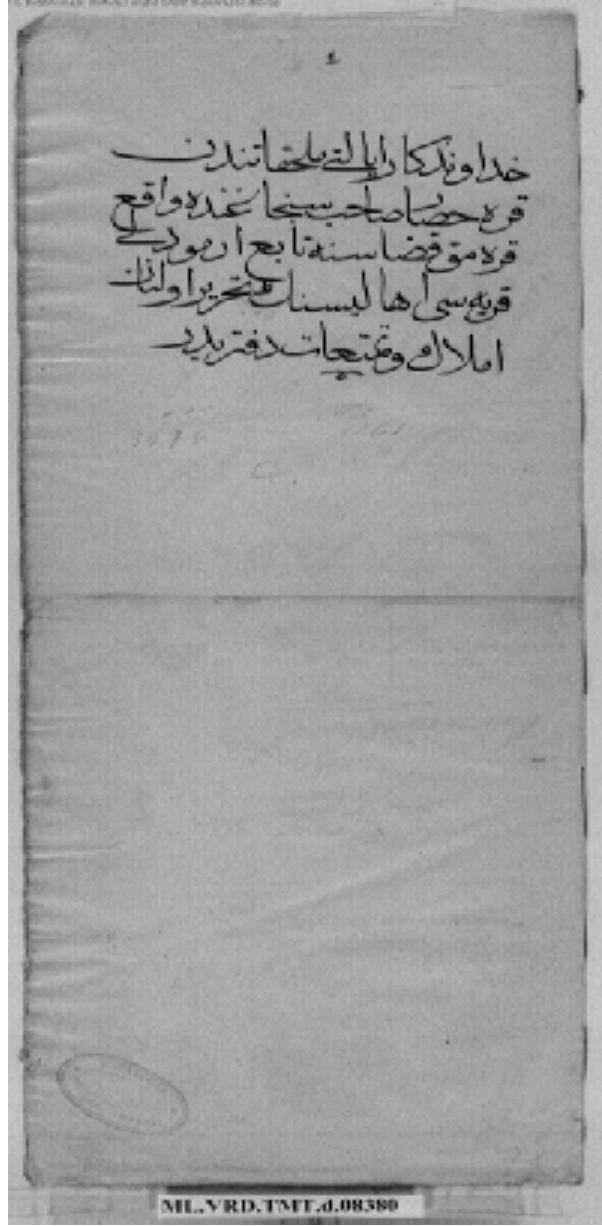 ٤
خداوندكار ايالتی ملحقاتندن
قره حصار صاحب سنجاغنده واقع
قره مق قضاسنه تابع ارمودلی
قریه سی اهالیسنك تحریر اولنان
املاك و تمتعات دفتریدر
ML.VRD.TMT.d.08380